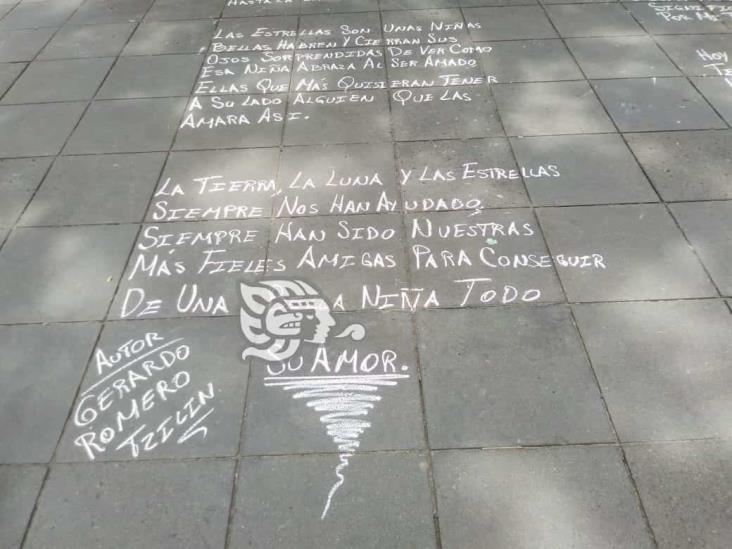 HASTA
LAS ESTRELLAS SON UNAS NIÑAS
BELLAS HABREN Y CIERRAN SUS
OJOS SORPRENDIDAS DE VER COMO
ESA NIÑA ABRAZA AL SER AMADO
ELLAS QUE MÁS QUISIERAN TENER
A SU LADO ALGUIEN QUE LAS
AMARA ASI.
LA TIERRA, LA LUNA Y LAS ESTRELLAS
SIEMPRE NOS HAN AYUDADO,
SIEMPRE HAN SIDO NUESTRAS
MÁS FIELES AMIGAS PARA CONSEGUIR
DE UNA A NIÑA TODO
SU AMOR.
AUTOR
GERARDO
ROMERO
TZILIN
POR
HOY